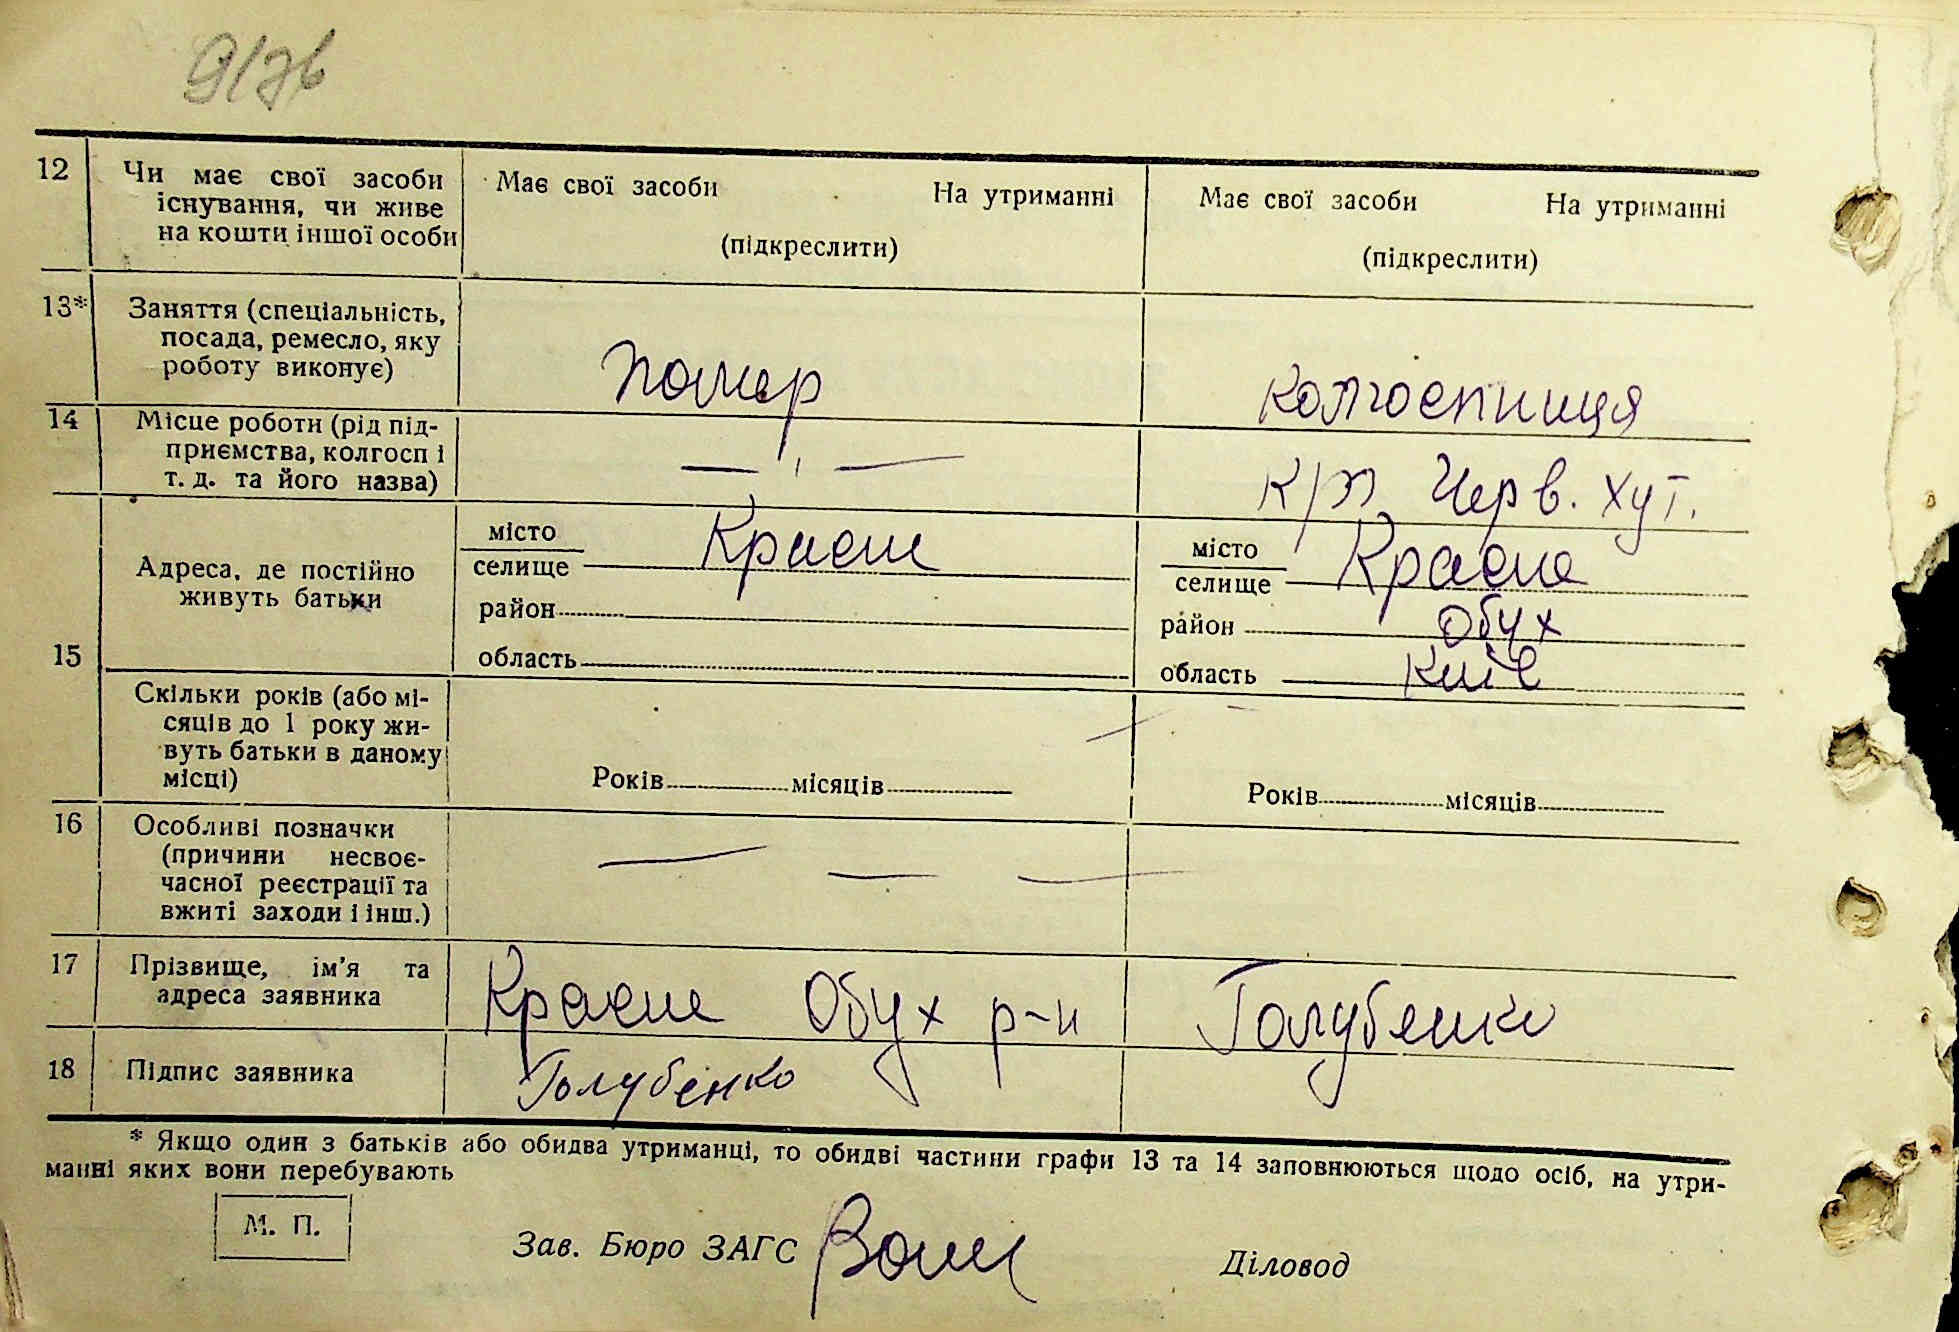 12 Чи має свої засоби існування, чи живе на кошти іншої особи
Має свої засоби На утриманні
(підкреслити)
Має свої засоби На утриманні
(підкреслити)
13* Заняття (спеціальність, посада, ремесло, яку роботу виконує)
помер
колгоспниця
14 Місце роботи (рід підприємства, колгосп і т. д. та його назва)
— " —
к/г Черв. хут.
15 Адреса, де постійно живуть батьки
місто
селище Красне
район
область
місто
селище Красне
район Обух
область Київ
Скільки років (або місяців до 1 року живуть батьки в даному місці)
Років місяців
Років місяців
16 Особливі позначки (причини несвоєчасної реєстрації та вжиті заходи і інш.)
— — —
17 Прізвище, ім'я та адреса заявника
Красне Обух р-н Голубенко
18 Підпис заявника
Голубенко
* Якщо один з батьків або обидва утриманці, то обидві частини графи 13 та 14 заповнюються щодо осіб, на утри-
манні яких вони перебувають
М. П.
Зав. Бюро ЗАГС
Діловод